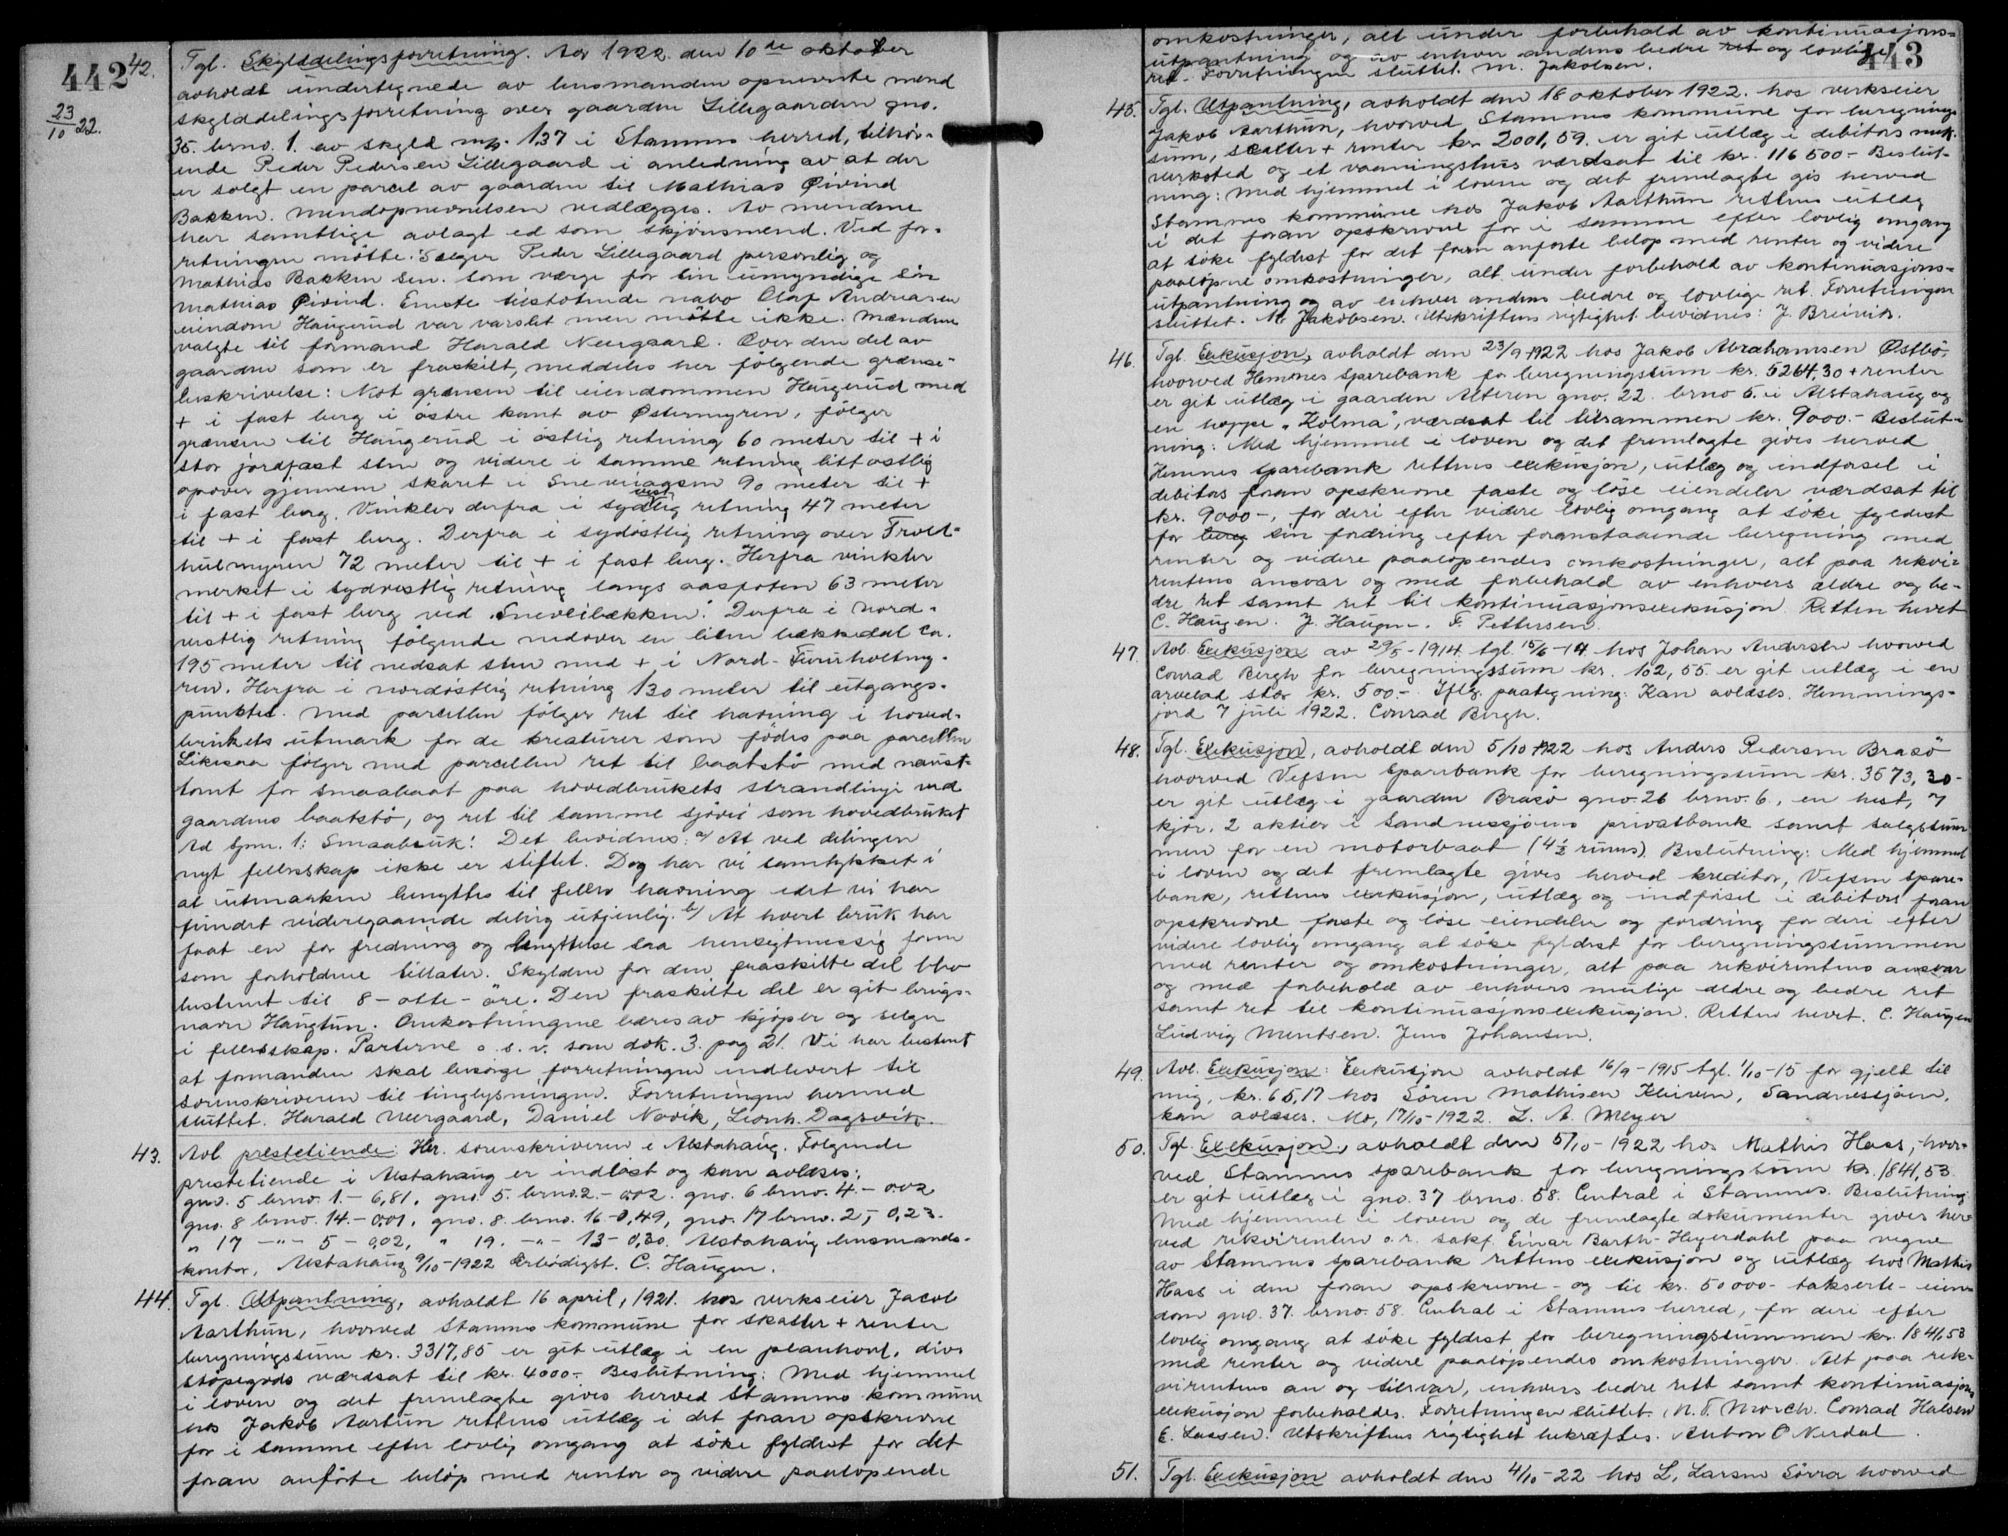 442
23/10 22.
42. Tgl. Skylddelingsforretning. Aar 1922 den 10de oktober
avholdt undertegnede av lensmanden opnevnte mend
skylddelingsforretning over gaarden Lillegaarden gno.
35. brno. 1. av skyld mrk. 1,37 i Stamnes herred, tilhør-
ende Peder Pedersen Lillegaard i anledning av at der
er solgt en parcel av gaarden til Mathias Øivind
Bakken. Mendopnevnelsen vedlægges. Av mendene
har samtlige avlagt ed som skjønsmend. Ved for-
retningen møtte: Sælger Peder Lillegaard personlig og
Mathias Bakken sen. som værge for sin umyndige søn
Mathias Øivind. Eneste tilstøtende nabo Olaf Andreasen
eiendom Haugerud var varslet men møtte ikke. Mændene
valgte til formand Harald Neergaard. Over den del av
gaarden som er fraskilt, meddeles her følgende grænse-
beskrivelse: Mot grænsen til eiendommen Haugerud med
+ i fast berg i østre kant av Østermyren, følger
grænsen til Haugerud i østlig retning 60 meter til + i
stor jordfast sten og videre i samme retning litt østlig
opover gjennem skaret i Sneveiaasen 90 meter til +
i fast berg. Vinkler derfra i sydvestlig retning 47 meter
til + i fast berg. Derfra i sydøstlig retning over Trold-
hulmyren 72 meter til + i fast berg. Herfra vinkler
merket i sydvestlig retning langs aasfoten 63 meter
til + i fast berg ved "Sneveibækken". Derfra i nord-
vestlig retning følgende nedover en liten bækkedal ca.
195 meter til nedsat sten med + i Nord-Furuholtmy-
ren. Herfra i nordøstlig retning 130 meter til utgangs-
punktet. Med parcellen følger ret til havning i hoved-
brukets utmark for de kreaturer som fødes paa parcellen
Likesaa følger med parcellen ret til baatstø med naust-
tomt for smaabaat paa hovedbrukets strandlinje ved
gaardens baatstø, og ret til samme sjøvei som hovedbruket
Ad spm. 1: Smaabruk! Det bevidnes: a/ At ved delingen
nyt fellesskap ikke er stiftet. Dog har vi samtykket i
at utmarken benyttes til felles havning idet vi har
fundet videregaaende deling utjenlig. b/ At hvert bruk har
faat en for fredning og benyttelse saa hensigtmessig form
som forholdene tillater. Skylden for den fraskilte del blev
bestemt til 8 - otte - øre. Den fraskilte del er git brugs-
navn Haugtun. Omkostningene bæres av kjøper og selger
i fellesskap. Parterne o. s. v. som dok. 3. pag 21. Vi har bestemt
at formanden skal besørge forretningen indlevert til
sorenskriveren til tinglysningen. Forretningen hermed
sluttet. Harald Neergaard, Daniel Novik, Leonh. Dagsvik.
43. Avl. prestetiende. Hr. sorenskriveren i Alstahaug. Følgende
prestetiende i Alstahaug er indløst og kan avleses:
gno. 5 brno. 1. - 6,81, gno. 5. brno. 2. - 0,02. gno. 6 brno. 4. - 0,02
gno. 8 brno. 14. - 0,01, gno. 8. brno. 16 - 0,49, gno. 17 brno. 2, - 0,23.
" 17 - " - 5 - 0,02, " 19. - " - 13 - 0,30. Alstahaug lensmands-
kontor, Alstahaug 9/10-1922 Erbødigst. C. Haugen.
44. Tgl. Utpantning, avholdt 16 april, 1921. hos verkseier Jacob
Aarthun, hvorved Stamnes kommune for skatter + renter
beregningssum kr. 3317,85 er git utlæg i en planhøvl, divs
støpegods værdsat til kr. 4000.- Beslutning: Med hjemmel
i loven og det fremlagte gives herved Stamnes kommune
hos Jakob Aartun rettens utlæg i det foran opskrevne
for i samme efter lovlig omgang at søke fyldest for det
foran anførte beløp med renter og videre paaløpende
443
omkostninger, alt under forbehold av kontinuasjons-
utpantning og av enhver andens bedre ret og lovlige
ret. Forretningen sluttet. M. Jakobsen.
45. Tgl. Utpantning, avholdt den 18 oktober 1922. hos verkseier
Jakob Aarthun, hvorved Stamnes kommune for beregnings-
sum, skatter + renter kr 2001,59. er git utlæg i debitors mek.
verksted og et vaaningshus værdsat til kr. 116 500.- Beslut-
ning: Med hjemmel i loven og det fremlagte gis herved
Stamnes kommune hos Jakob Aarthun rettens utlæg
i det foran opskrevne for i samme efter lovlig omgang
at søke fyldest for det foran anførte beløp med renter og videre
paaløpne omkostninger, alt under forbehold av kontinuasjons-
utpantning og av enhver andens bedre og lovlige ret. Forretningen
sluttet. M. Jakobsen. Utskriftens rigtighet bevidnes: J. Breivik.
46. Tgl. Exekusjon, avholdt den 23/9-1922 hos Jakob Abrahamsen Østbø.
hvorved Hemnes Sparebank for beregningssum kr. 5264,30 + renter
er git utlæg i gaarden Alteren gno. 22. brno 5. i Alstahaug og
en hoppe "Kolma", værdsat til tilsammen kr. 9000.- Beslut-
ning: Med hjemmel i loven og det fremlagte gives herved
Hemnes Sparebank rettens exekusjon, utlæg og indførsel i
debitors foran opskrevne faste og løse eiendeler værdsat til
kr. 9000-, for deri efter videre lovlig omgang at søke fyldest
for bereg sin fordring efter foranstaaende beregning med
renter og videre paaløpendes omkostninger, alt paa rekvi-
rentens ansvar og med forbehold av enhvers ældre og be-
dre ret samt ret til kontinuasjonsexekusjon. Retten hevet
C. Haugen. J. Haugen. F. Pettersen.
47. Avl. Exekusjon av 29/5-1914 tgl 15/6-14 hos Johan Andersen hvorved
Conrad Bergh for beregningssum kr. 102,55 er git utlæg i en
arvelod stor kr. 500.- Iflg. paategning: Kan avlæses. Hemmings-
jord 7 juli 1922. Conrad Bergh.
48. Tgl. Exekusjon, avholdt den 5/10 1922 hos Anders Pedersen Brasø
hvorved Vefsen Sparebank for beregningssum kr. 3573,30-
er git utlæg i gaarden Brasø gno. 26 brno. 6, en hest, ny
kjør. 2 aktier i Sandnessjøens privatbank samt salgssum
men for en motorbaat (4½ rums). Beslutning: Med hjemmel
i loven og det fremlagte gives herved kreditor, Vefsen Spare-
bank, rettens exekusjon, utlæg og indførsel i debitors foran
opskrevne faste og løse eiendeler og fordring for deri efter
videre lovlig omgang at søke fyldest for beregningssummen
med renter og omkostninger, alt paa rekvirentens ansvar
og med forbehold av enhvers mulige ældre og bedre ret
samt ret til kontinuasjonsexekusjon. Retten hevet. C. Haugen
Ludvig Mentsen. Jens Johansen.
49. Avl. Exekusjon: Exekusjon avholdt 16/9-1915 tgl. 1/10-15 for gjeld til
mig, kr. 65,17 hos Søren Mathisen Kleiven, Sandnessjøen,
kan avleses. Mo, 17/10-1922. L. A Meyer
50. Tgl. Exekusjon, avholdt den 5/10-1922 hos Mathis Hass, hvor-
ved Stamnes sparebank for beregningssum kr. 1841,53
er git utlæg i gno. 37 brno. 58. Central i Stamnes. Beslutning
Med hjemmel i loven og de fremlagte dokumenter gives her
ved rekvirenten o.r. sakf. Einar Barth-Heyerdahl paa vegne
av Stamnes sparebank rettens exekusjon og utlæg hos Mathis
Hass i den foran opskrevne - og til kr. 50000- takserte - eien
dom gno. 37. brno. 58. Central i Stamnes herred, for deri efter
lovlig omgang at søke fyldest for beregningssummen kr. 1841,53
med renter og videre paaløpendes omkostninger. Alt paa rek-
virentens an og tilsvar, enhvers bedre rett samt kontinuasjons
exekusjon forbeholdes. Forretningen sluttet. M. T. Mørch. Conrad Halsen
E. Lassen. Utskriftens rigtighet bekræftes. Anton O Nerdal.
51. Tgl. Exekusjon avholdt den 4/10-22 hos L. Larsen Sørra hvorved